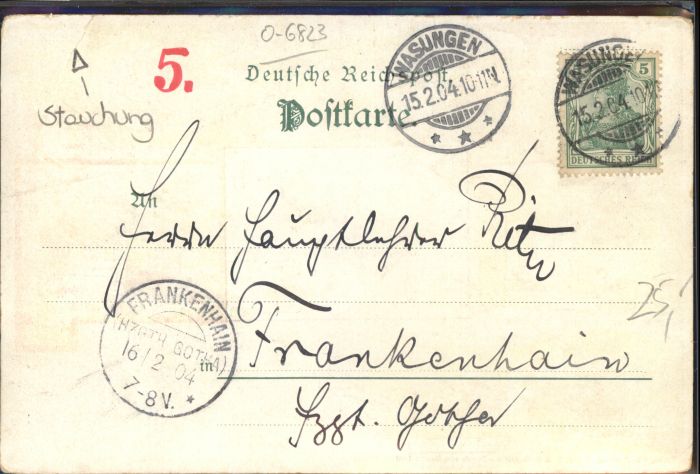 O-6823
5.
Stauchung
Deutsche Reichspost
Postkarte.
WASUNGEN
15.2.04.10-11V.
WASUNGEN
15.2.04.10-11V.
5
DEUTSCHES REICH
An
Herrn Hauptlehrer
in
Frankenhain
Hzgt. Gotha
FRANKENHAIN
(HZGTH. GOTHA)
16/2 04
7-8V.
25,